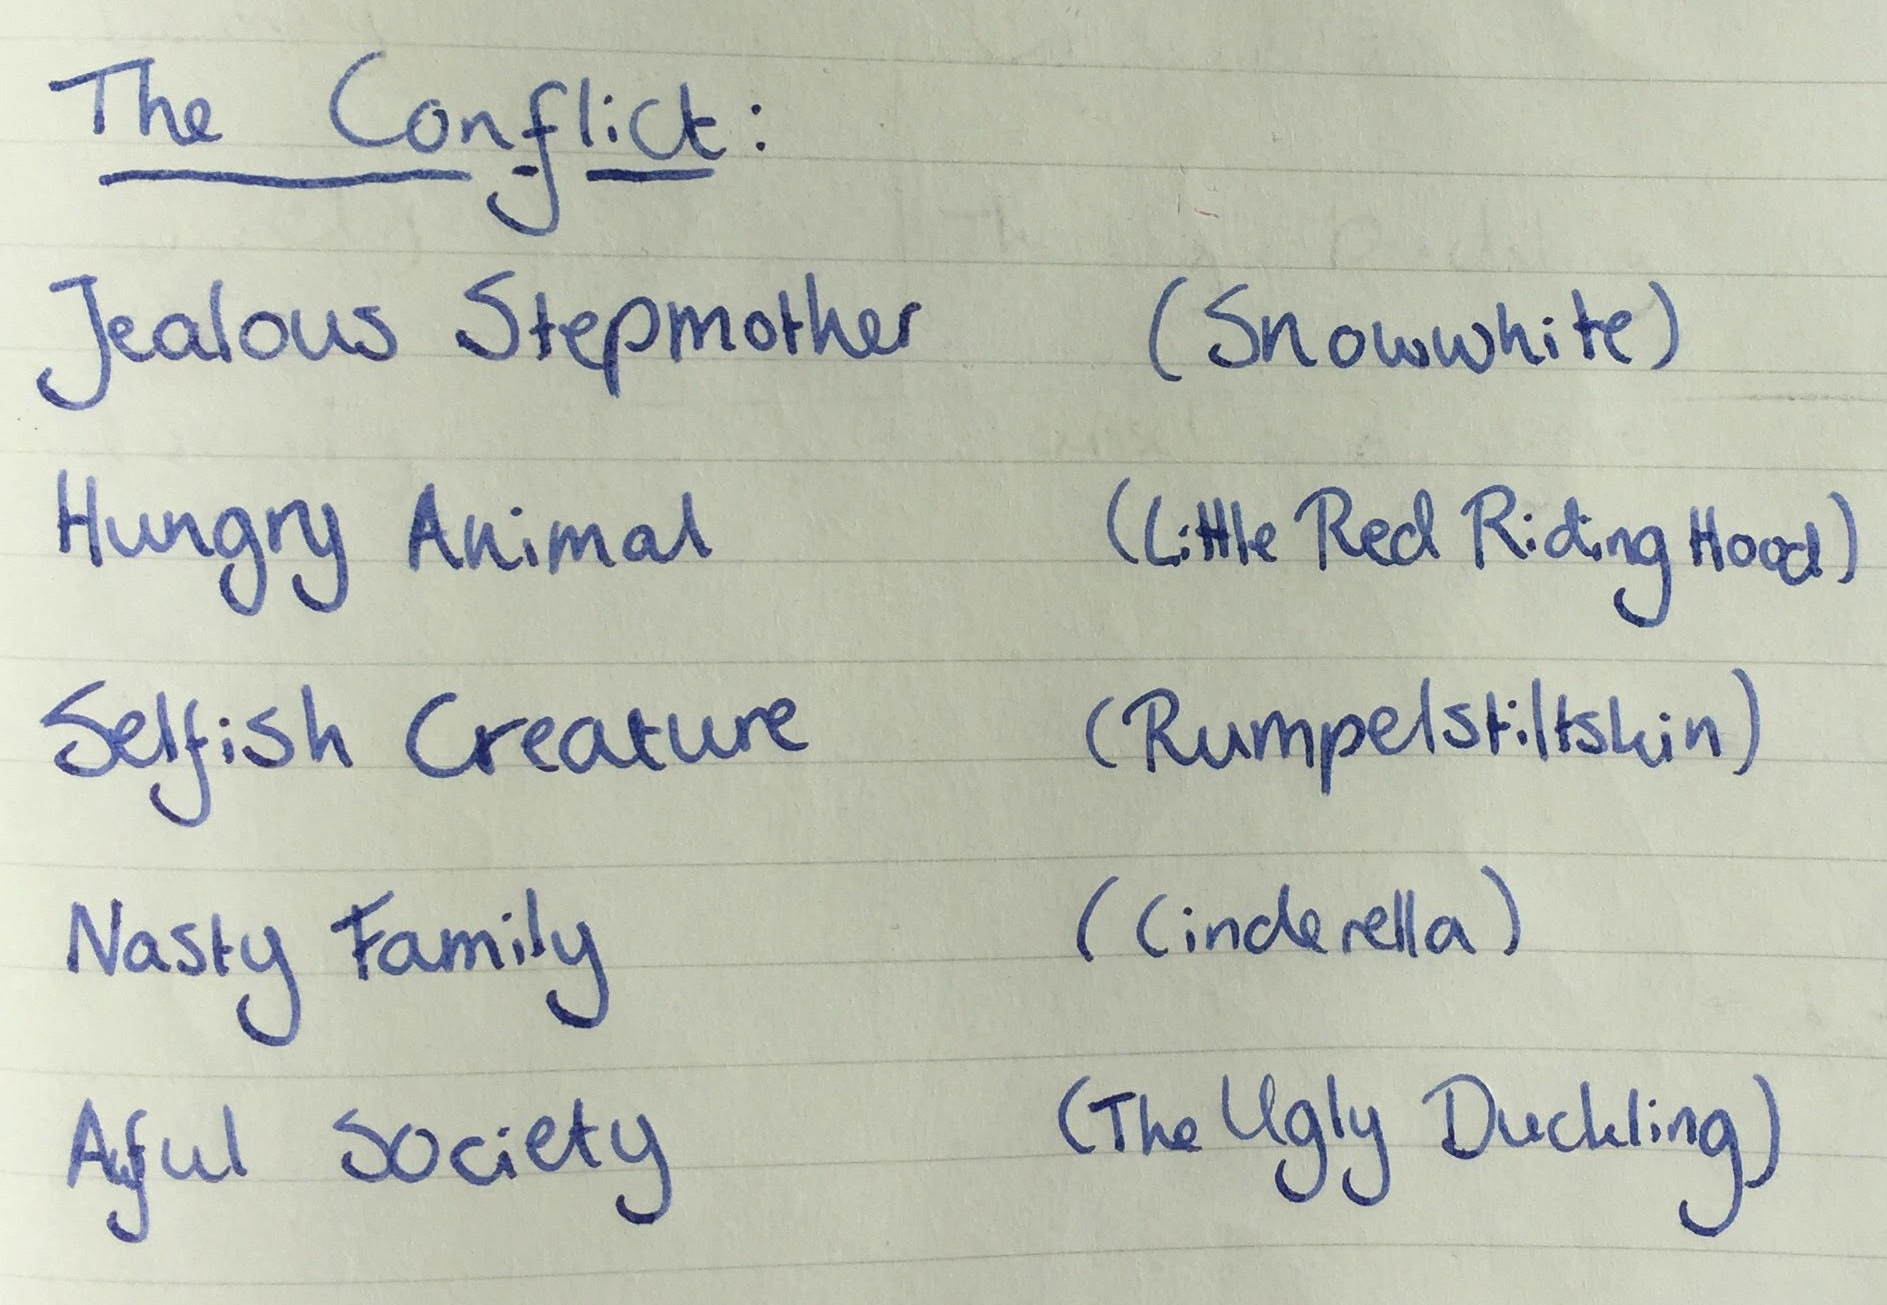 The Conflict:
Jealous Stepmother (Snowwhite)
Hungry Animal (Little Red Riding Hood)
Selfish Creature (Rumpelstiltskin)
Nasty Family (Cinderella)
Awful Society (The Ugly Duckling)